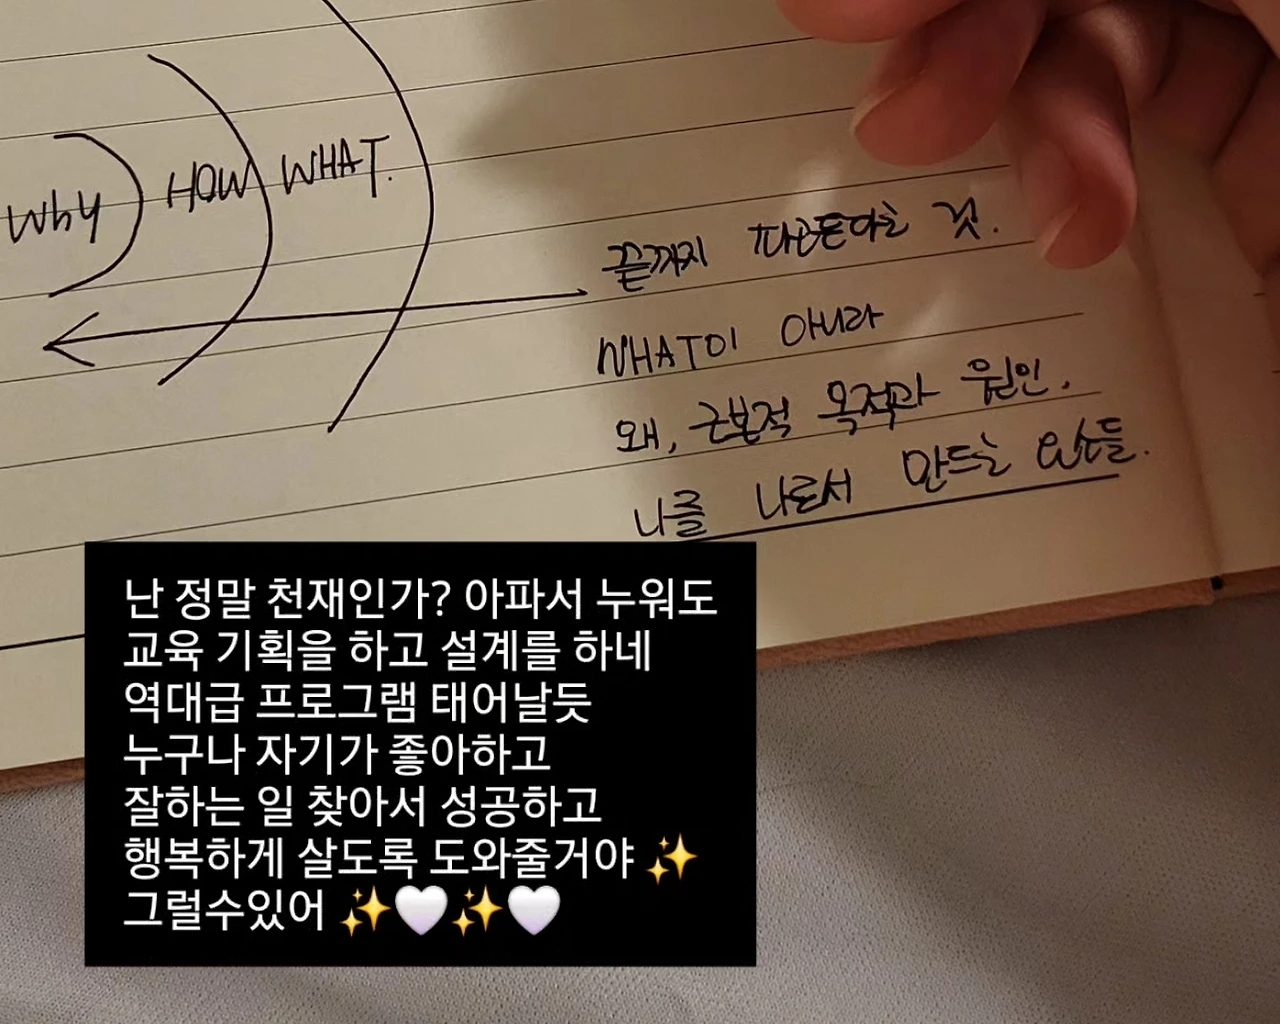 Why HOW WHAT.
끝까지 파고든다는 것.
WHAT이 아니라
왜, 근본적 목적과 원인.
나를 나로서 만드는 요소들.
난 정말 천재인가? 아파서 누워도
교육 기획을 하고 설계를 하네
역대급 프로그램 태어날듯
누구나 자기가 좋아하고
잘하는 일 찾아서 성공하고
행복하게 살도록 도와줄거야 ✨
그럴수있어 ✨🤍✨🤍